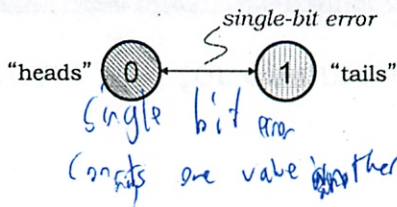 single-bit error
"heads" 0 1 "tails"
single bit error
one value another